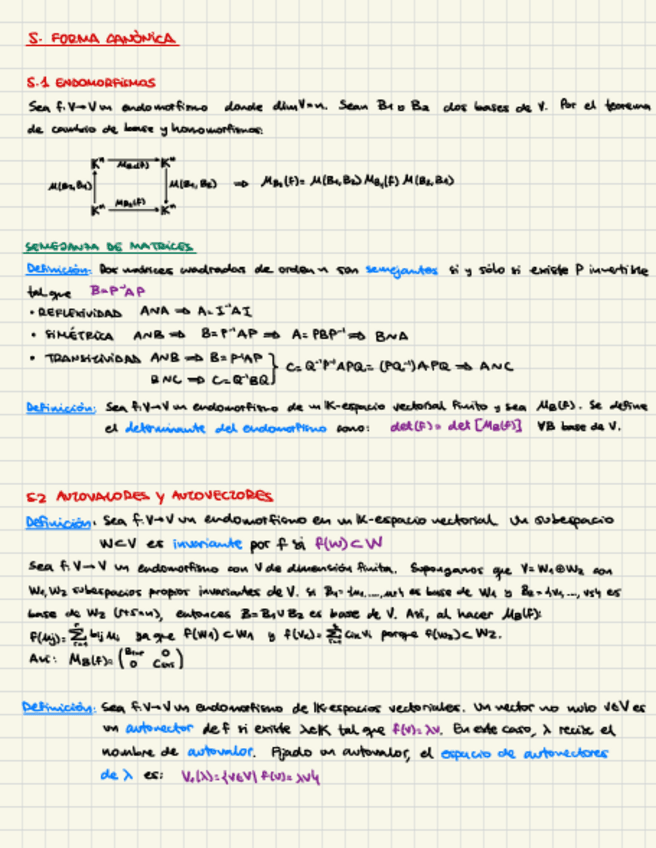 5. FORMA CANÓNICA
5.1 ENDOMORFISMOS
Sea f:V→V un endomorfismo donde dimV=n. Sean B₁ y B₂ dos bases de V. Por el teorema
de cambio de base y homomorfismos:
Kⁿ M_B₁(f) Kⁿ
M(B₂,B₁) M(B₁,B₂) ⇒ M_B₂(f)= M(B₁,B₂) M_B₁(f) M(B₂,B₁)
Kⁿ M_B₂(f) Kⁿ
SEMEJANZA DE MATRICES
Definición: Dos matrices cuadradas de orden n son semejantes si y sólo si existe P invertible
tal que B=P⁻¹AP
• REFLEXIVIDAD A~A ⇒ A=I⁻¹AI
• SIMÉTRICA A~B ⇒ B=P⁻¹AP ⇒ A=PBP⁻¹ ⇒ B~A
• TRANSITIVIDAD A~B ⇒ B=P⁻¹AP } C=Q⁻¹P⁻¹APQ=(PQ⁻¹)APQ ⇒ A~C
B~C ⇒ C=Q⁻¹BQ
Definición: Sea f:V→V un endomorfismo de un K-espacio vectorial finito y sea M_B(f). Se define
el determinante del endomorfismo como: det(f)= det[M_B(f)] ∀B base de V.
5.2 AUTOVALORES Y AUTOVECTORES
Definición: Sea f:V→V un endomorfismo en un K-espacio vectorial. Un subespacio
W⊂V es invariante por f si f(W)⊂W
Sea f:V→V un endomorfismo con V de dimensión finita. Supongamos que V=W₁⊕W₂ con
W₁,W₂ subespacios propios invariantes de V. Si B₁={u₁,...,ur} es base de W₁ y B₂={v₁,...,vs} es
base de W₂ (r+s=n), entonces B=B₁∪B₂ es base de V. Así, al hacer M_B(f):
f(uj)=∑ bij ui ya que f(W₁)⊂W₁ y f(vk)=∑ cik vi porque f(W₂)⊂W₂.
Así: M_B(f)=(Brxr 0
0 Csxs)
Definición: Sea f:V→V un endomorfismo de K-espacios vectoriales. Un vector no nulo v∈V es
un autovector de f si existe λ∈K tal que f(v)=λv. En este caso, λ recibe el
nombre de autovalor. Fijado un autovalor, el espacio de autovectores
de λ es: V₁(λ)={v∈V| f(v)=λv}